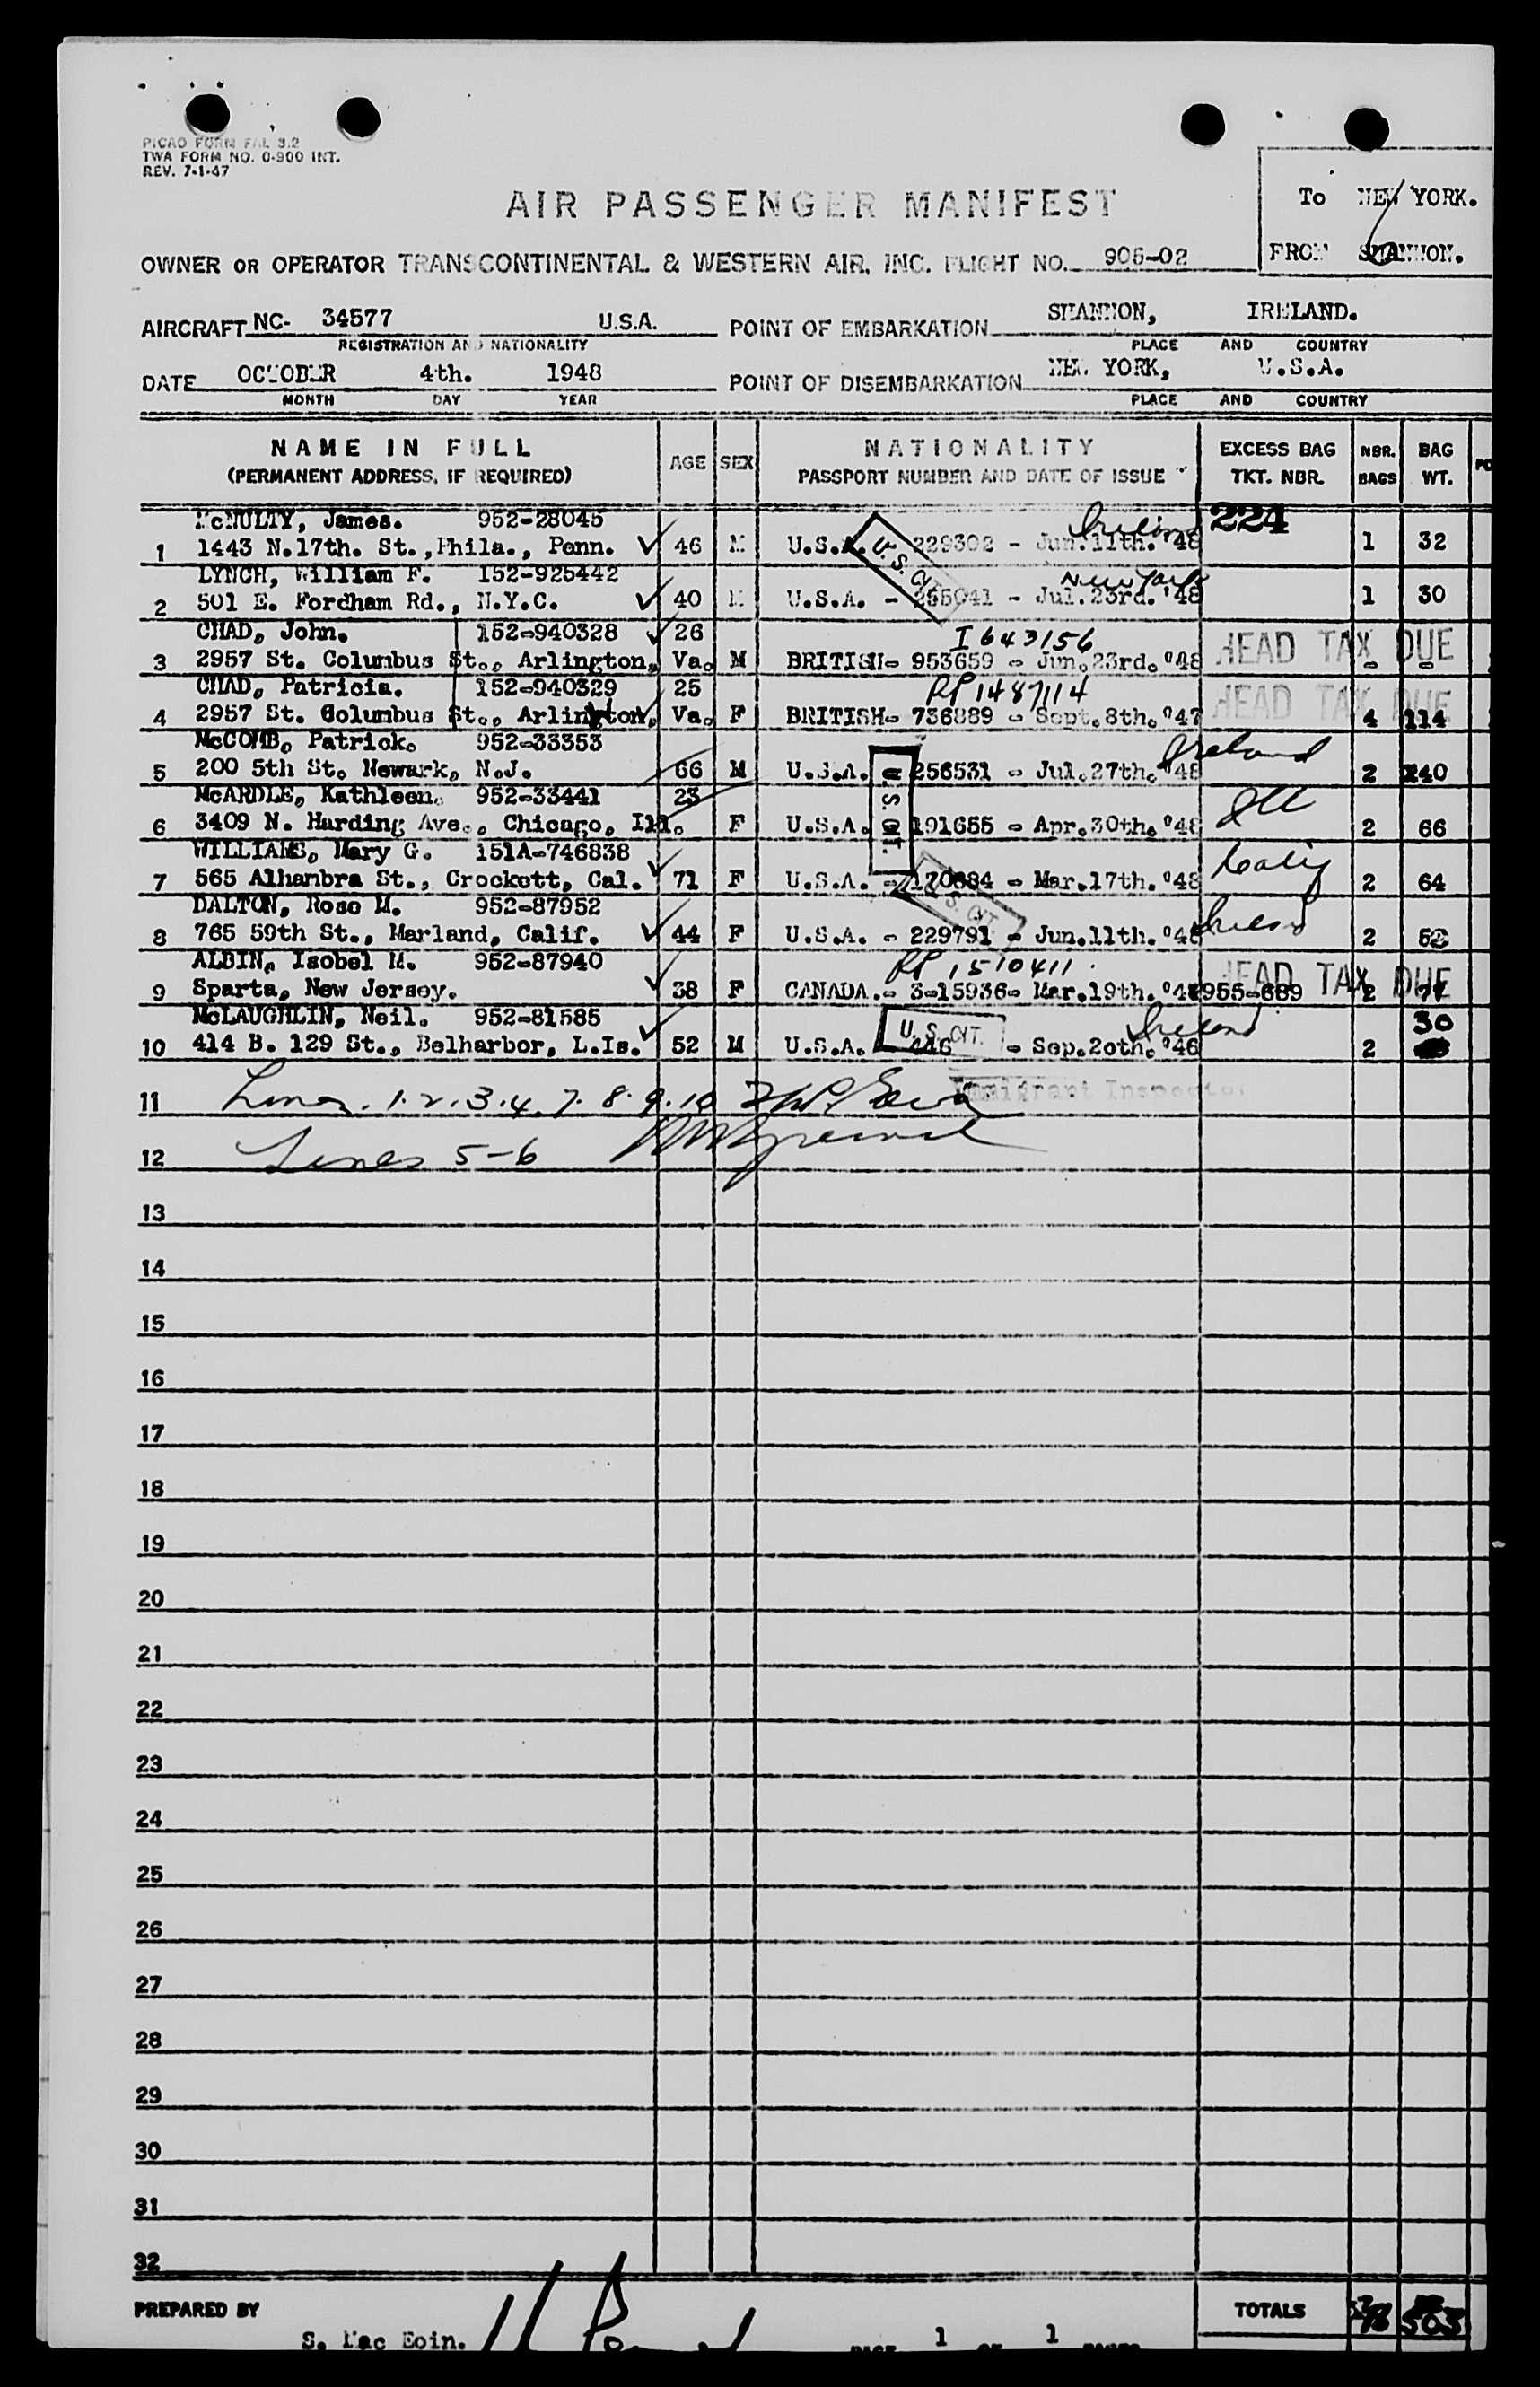 PICAO FORM FAL 3.2
TWA FORM NO. 0-900 INT.
REV. 7-1-47
To NEW YORK.
FROM SHANNON.
AIR PASSENGER MANIFEST
OWNER OR OPERATOR TRANSCONTINENTAL & WESTERN AIR, INC. FLIGHT NO. 905-02
AIRCRAFT NC- 34577 U.S.A. POINT OF EMBARKATION SHANNON, IRELAND.
REGISTRATION AND NATIONALITY PLACE AND COUNTRY
DATE OCTOBER 4th. 1948 POINT OF DISEMBARKATION NEW YORK, U.S.A.
MONTH DAY YEAR PLACE AND COUNTRY
NAME IN FULL AGE SEX NATIONALITY EXCESS BAG NBR. BAG
(PERMANENT ADDRESS, IF REQUIRED) PASSPORT NUMBER AND DATE OF ISSUE TKT. NBR. BAGS WT.
McNULTY, James. 952-28045 Ireland 224
1 1443 N.17th. St.,Phila., Penn. 46 M U.S.A. 229302 - Jun.11th. '48 1 32
U. S. CIT.
LYNCH, William F. 152-925442 New York
2 501 E. Fordham Rd., N.Y.C. 40 M U.S.A. - 265041 - Jul.23rd. '48 1 30
CHAD, John. 152-940328 26 I 643156
3 2957 St. Columbus St., Arlington, Va. M BRITISH- 953659 - Jun.23rd. '48 HEAD TAX DUE - -
CHAD, Patricia. 152-940329 25 RP 1487114
4 2957 St. Columbus St., Arlington, Va. F BRITISH- 736889 - Sept.8th. '47 HEAD TAX DUE 4 114
McCOMB, Patrick. 952-33353 Ireland
5 200 5th St. Newark, N.J. 66 M U.S.A. 256531 - Jul.27th. '48 2 40
U.S. CIT.
McARDLE, Kathleen. 952-33441 23 Ill
6 3409 N. Harding Ave., Chicago, Ill. F U.S.A. 191655 - Apr.30th. '48 2 66
WILLIAMS, Mary G. 151A-746838 Calif
7 565 Alhambra St., Crockett, Cal. 71 F U.S.A. - 170884 - Mar.17th. '48 2 64
U. S. CIT.
DALTON, Rose M. 952-87952 Ireland
8 765 59th St., Marland, Calif. 44 F U.S.A. - 229791 - Jun.11th. '48 2
ALBIN, Isobel M. 952-87940 RP 1510411.
9 Sparta, New Jersey. 38 F CANADA.- 3-15936- Mar.19th. '48 955-689 HEAD TAX DUE 2
McLAUGHLIN, Neil. 952-81585 U. S. CIT. Ireland 30
10 414 B. 129 St., Belharbor, L.Is. 52 M U.S.A. - Sep.2oth. '46 2
11 Lines. 1.2.3.4.7.8.9.10 Immigrant Inspector
12 Lines 5-6
13
14
15
16
17
18
19
20
21
22
23
24
25
26
27
28
29
30
31
32
PREPARED BY TOTALS 503
S. Mac Eoin. PAGE 1 OF 1 PAGES